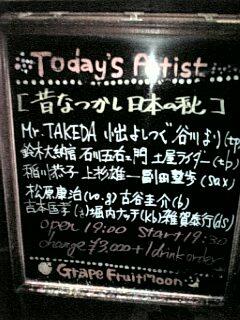 Today's Artist
[昔なつかし日本の秋]
Mr. TAKEDA 小出よしつぐ 谷川より(tp)
鈴木大納言 石川五右ェ門 土屋ライダー(tb)
稲川恭子 上杉雄一 副田整歩(sax)
松原康治(vo.g) 古谷圭介(b)
吉本 堀内ナッテ(kb) 雑賀泰行(ds)
open 19:00 Start 19:30
charge ¥3,000+1drink order
GrapeFruitMoon